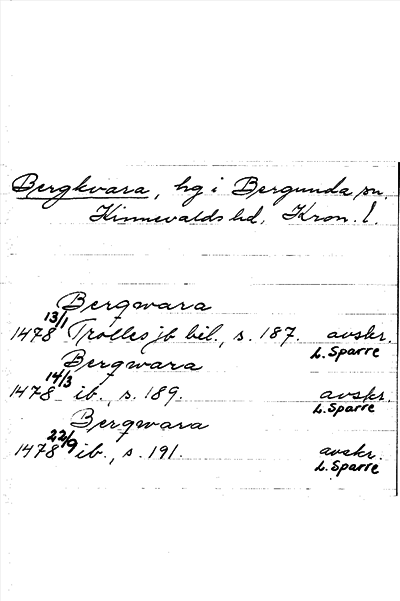 Bergkvara, hg i Bergunda sn.
Kinnevalds hd, Kron. l.
Bergqwara
1478 13/1 Trolles jb bil., s. 187. avskr.
L. Sparre
Bergqwara
1478 14/3 ib., s. 189. avskr.
L. Sparre
Bergqwara
1478 22/9 ib., s. 191. avskr.
L. Sparre